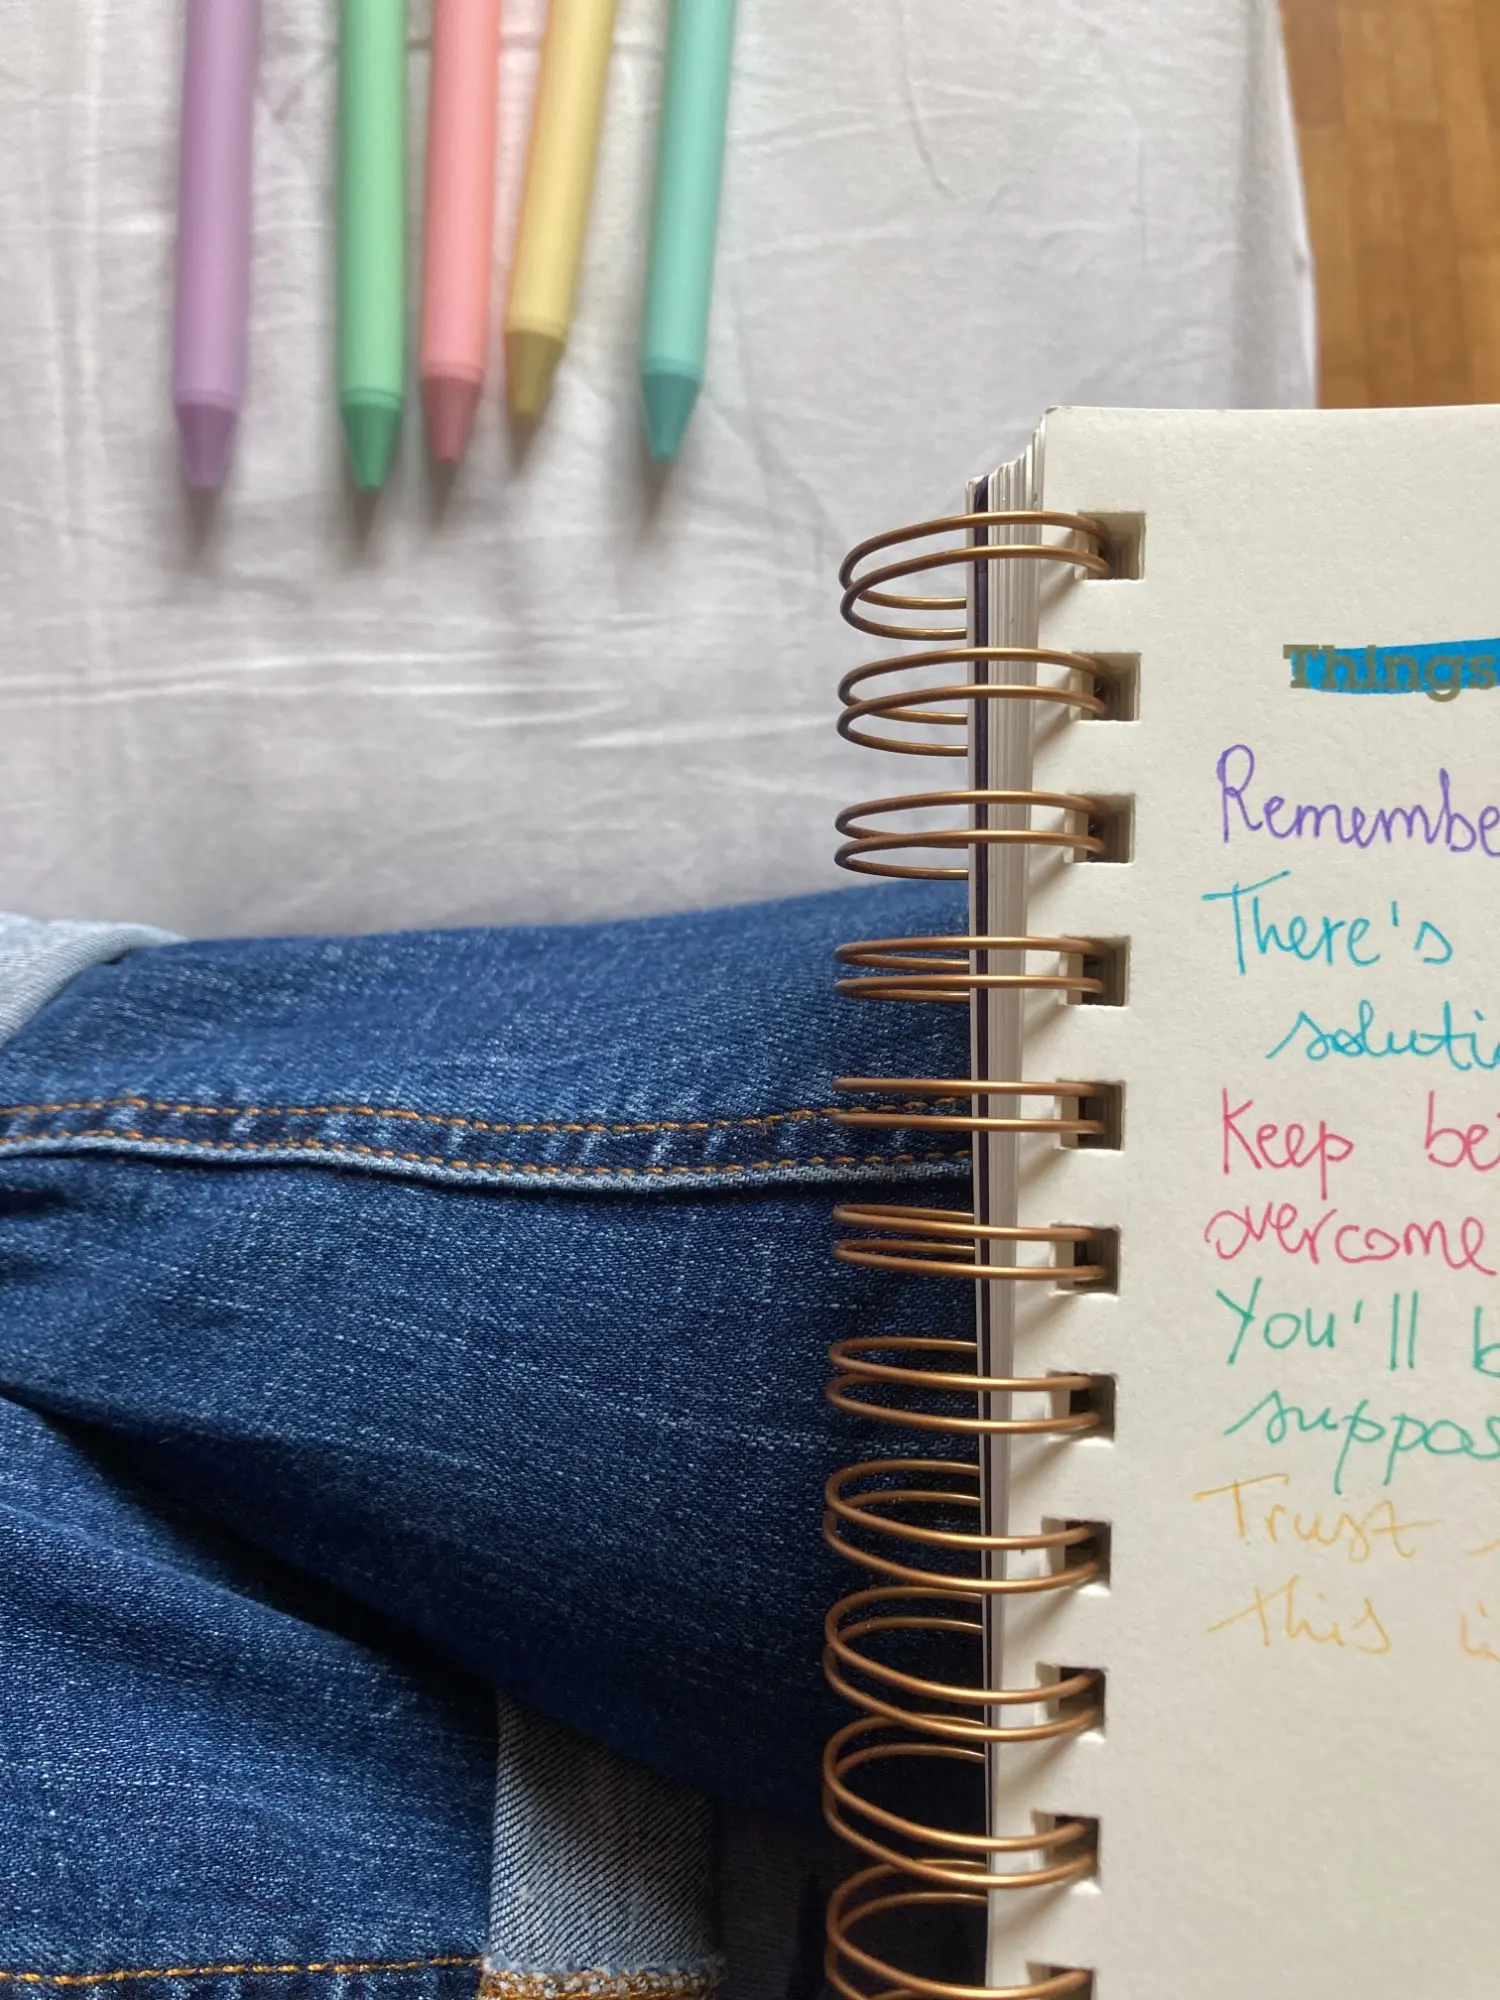 Things
Remembe
There's
soluti
Keep be
overcome
You'll b
suppos
Trust
this i